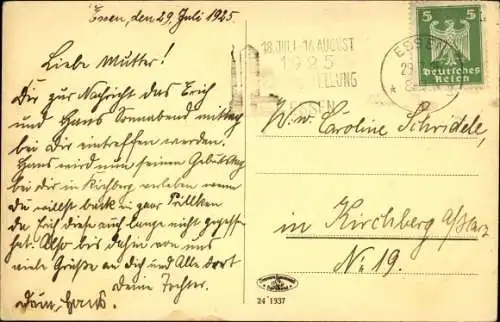 Essen, den 29. Juli 1925
Liebe Mutter!
Dir zur Nachricht das Erich
und Hans Sonnabend mittag
bei Dir eintreffen werden.
Hans wird nun seinen Geburtstag
bei dir in Kirchberg verleben wenn
du willst back in paar Prillken
da Erich diese auch lange nicht gegessen
hat. Also bis dahin von uns
viele Grüße an dich und Alle dort
Deine Tochter.
18 JULI-16 AUGUST
1925
STELLUNG
ESSEN
ESSEN
29.7.
5 5
Deutsches
Reich
Ww. Caroline Schridele,
in Kirchberg a/Harz
No 19.
24 1337